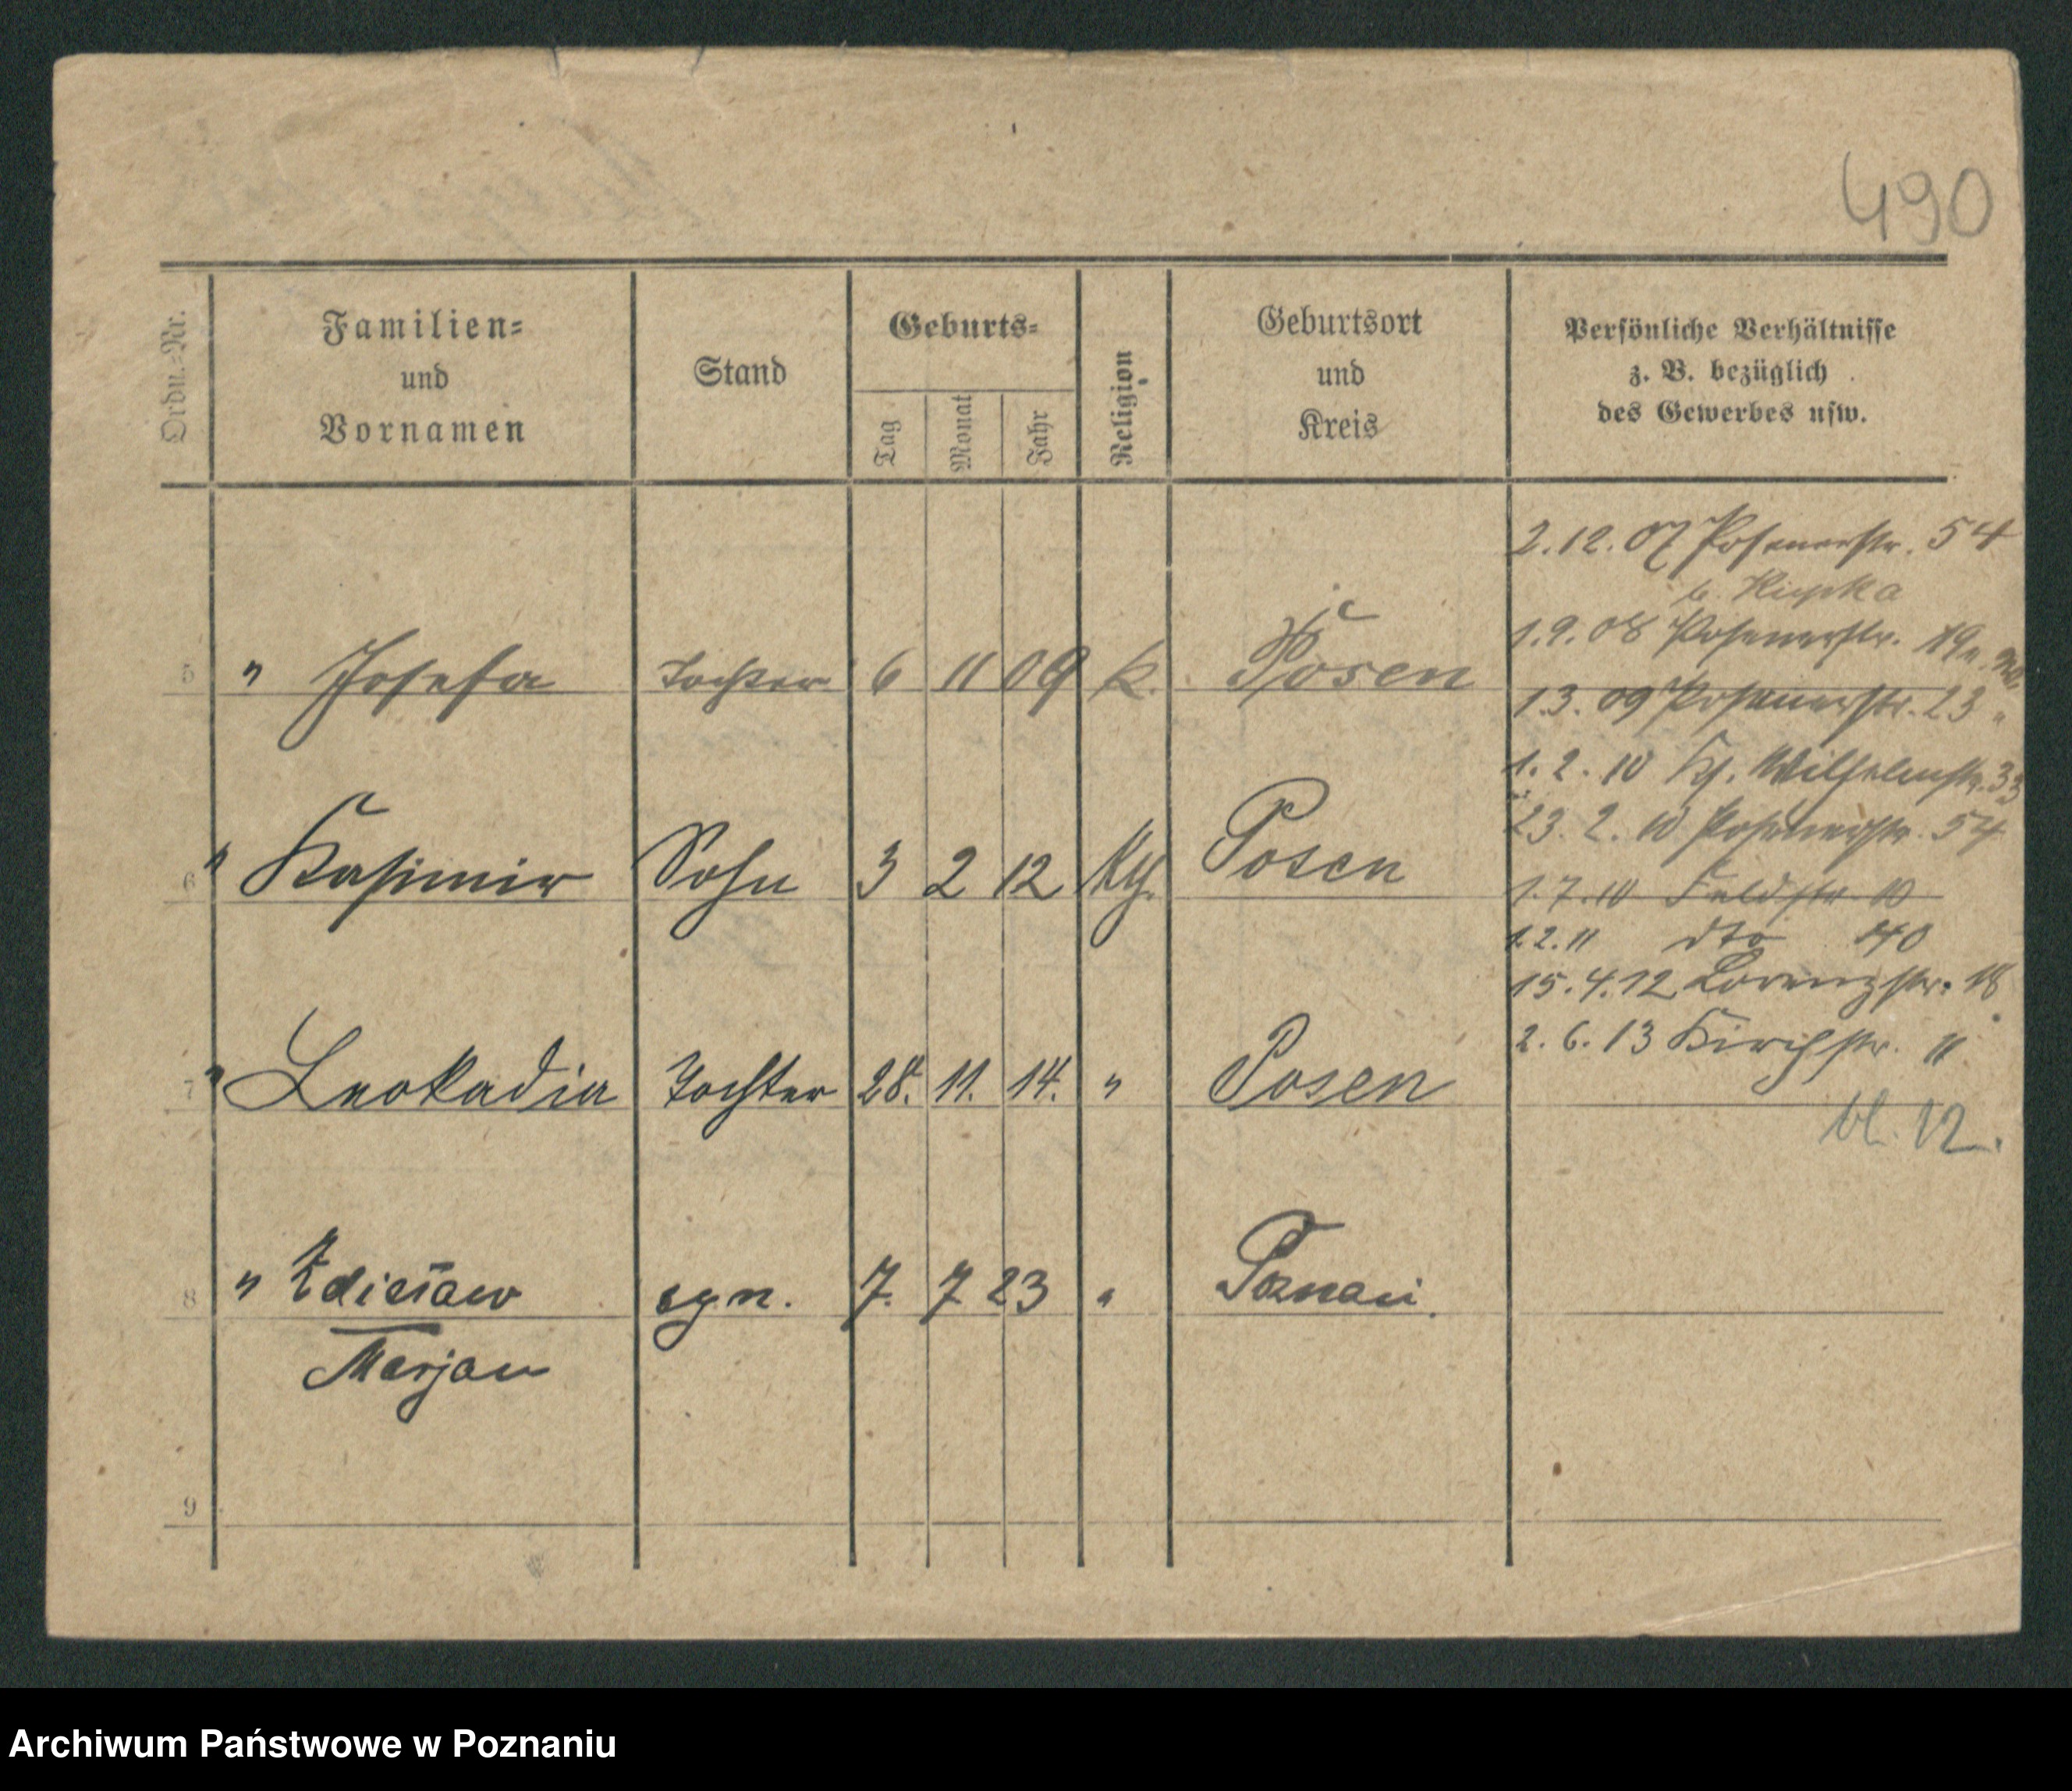 490
Ordn.-Nr.
Familien-
und
Vornamen
Stand
Geburts-
Tag
Monat
Jahr
Religion
Geburtsort
und
Kreis
Persönliche Verhältnisse
z. B. bezüglich
des Gewerbes usw.
2.12.07 Posenerstr. 54
1.9.08 Posenerstr. 19a
1.3.09 Posenerstr. 23 "
1.2.10 Wilhelmstr. 33
23.2.10 Posenerstr. 54
1.7.10 Feldstr. 10
1.2.11 dto 40
15.4.12 Lorenzstr. 18
2.6.13 Kirchstr. 11
12.
5 " Josefa Tochter 6 11 09 k. Posen
6 " Kasimir Sohn 3 2 12 Kth. Posen
7 " Leokadia Tochter 28. 11. 14. " Posen
8 " Zdisław syn. 7. 7 23 " Poznań.
Marjan
9
Archiwum Państwowe w Poznaniu